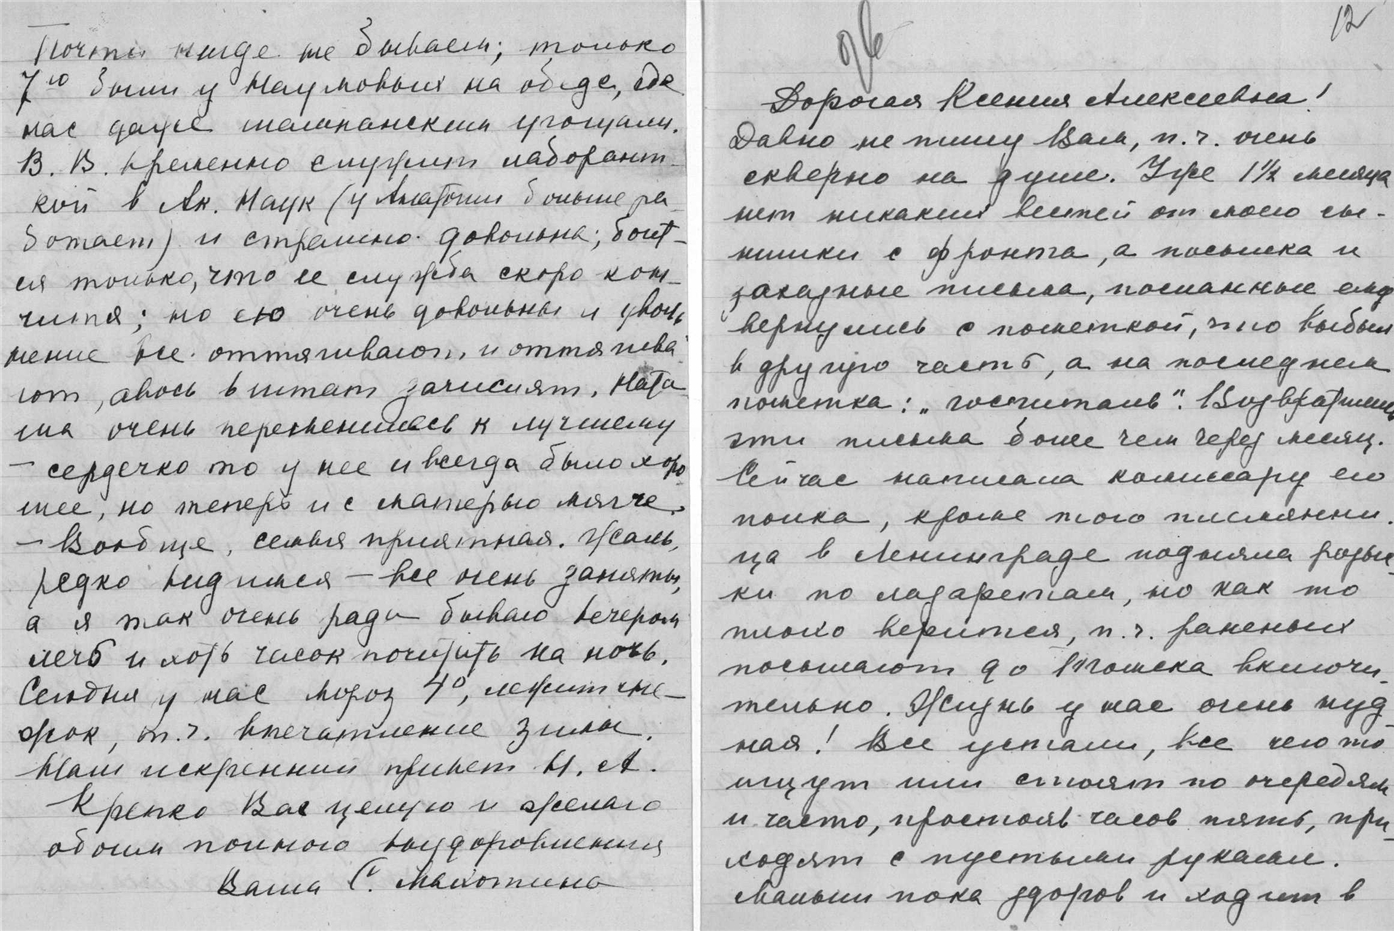 12
Дорогая Ксения Алексеевна!
Давно не пишу Вам, п.ч. очень
скверно на душе. Уже 1½ месяца
нет никаких вестей от моего сы-
нишки с фронта, а посылка и
заказные письма, посланные ему
вернулись с пометкой, что выбыл
в другую часть, а на последнем
пометка: „госпиталь“. Возвратились
эти письма более чем через месяц.
Сейчас написала комиссару его
полка, кроме того племянни-
ца в Ленинграде подняла розыс-
ки по лазаретам, но как то
плохо верится, п.ч. раненых
посылают до Томска включи-
тельно. Жизнь у нас очень нуд-
ная! Все устали, все чего то
ищут или стоят по очередям
и часто, простояв часов пять, при-
ходят с пустыми руками.
пока здоров и ходит в
Почти нигде не бываем; только
7го были у Наумовых на обеде, где
нас даже шампанским угощали.
В. В. временно служит лаборант-
кой в Ак. Наук (у Анатолия больше ра-
ботает) и страшно довольна; боит-
ся только, что ее служба скоро кон-
чится; но ею очень довольны и уволь-
нение все оттягивают и оттягива-
ют, авось в штат зачислят. Ната-
ша очень переменилась к лучшему
— сердечко то у нее и всегда было хоро-
шее, но теперь и с матерью мягче.
— Вообще, семья приятная. Жаль,
редко видимся — все очень заняты,
а я так очень рада бываю вечером
лечь и хоть часок почитать на ночь.
Сегодня у нас мороз 4°, лежит сне-
жок, т.ч. впечатление зимы.
Наш искренний привет Н. А.
Крепко Вас целую и желаю
обоим полного выздоровления
Ваша С. Махотина